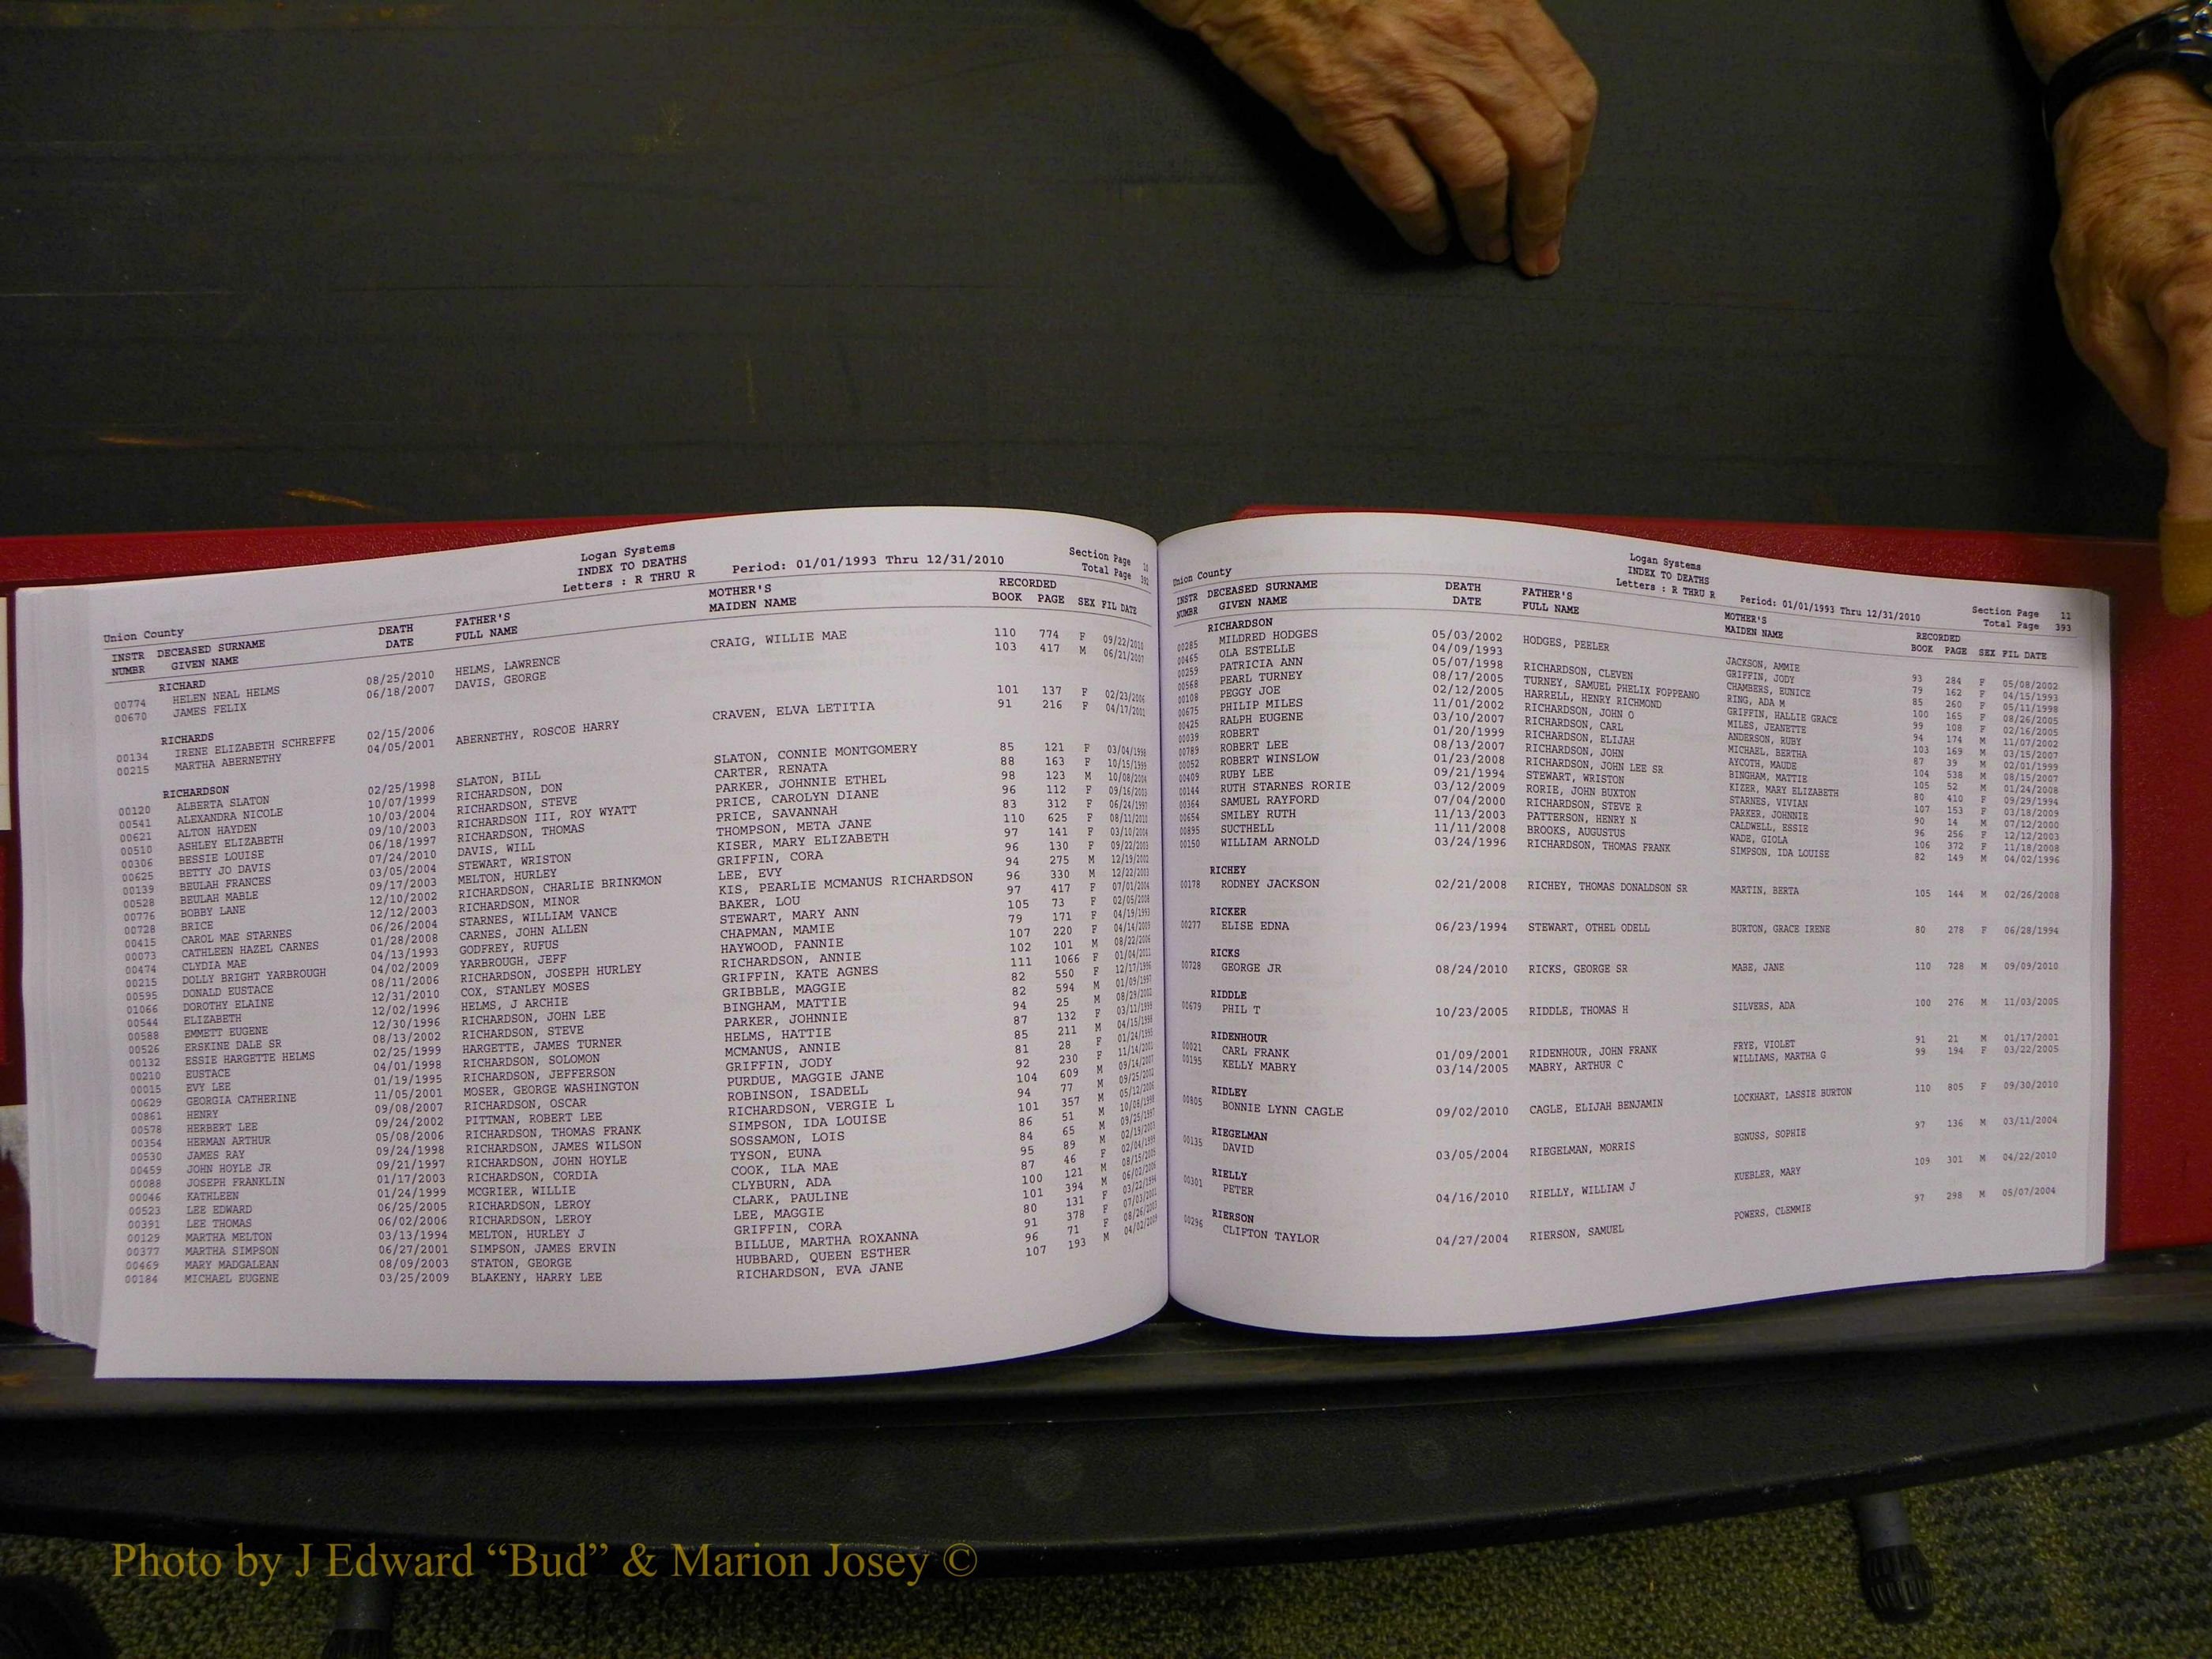 Logan Systems
INDEX TO DEATHS
Letters : R THRU R Period: 01/01/1993 Thru 12/31/2010
Section Page
Total Page 392
Union County
INSTR DECEASED SURNAME DEATH FATHER'S MOTHER'S RECORDED
NUMBR GIVEN NAME DATE FULL NAME MAIDEN NAME BOOK PAGE SEX FIL DATE
RICHARD
00774 HELEN NEAL HELMS 08/25/2010 HELMS, LAWRENCE CRAIG, WILLIE MAE 110 774 F 09/22/2010
00670 JAMES FELIX 06/18/2007 DAVIS, GEORGE 103 417 M 06/21/2007
RICHARDS
00134 IRENE ELIZABETH SCHREFFE 02/15/2006 101 137 F 02/23/2006
00215 MARTHA ABERNETHY 04/05/2001 ABERNETHY, ROSCOE HARRY CRAVEN, ELVA LETITIA 91 216 F 04/17/2001
RICHARDSON
00120 ALBERTA SLATON 02/25/1998 SLATON, BILL SLATON, CONNIE MONTGOMERY 85 121 F 03/04/1998
00541 ALEXANDRA NICOLE 10/07/1999 RICHARDSON, DON CARTER, RENATA 88 163 F 10/15/1999
00621 ALTON HAYDEN 10/03/2004 RICHARDSON, STEVE PARKER, JOHNNIE ETHEL 98 123 M 10/08/2004
00510 ASHLEY ELIZABETH 09/10/2003 RICHARDSON III, ROY WYATT PRICE, CAROLYN DIANE 96 112 F 09/16/2003
00306 BESSIE LOUISE 06/18/1997 RICHARDSON, THOMAS PRICE, SAVANNAH 83 312 F 06/24/1997
00625 BETTY JO DAVIS 07/24/2010 DAVIS, WILL THOMPSON, META JANE 110 625 F 08/11/2010
00139 BEULAH FRANCES 03/05/2004 STEWART, WRISTON KISER, MARY ELIZABETH 97 141 F 03/10/2004
00528 BEULAH MABLE 09/17/2003 MELTON, HURLEY GRIFFIN, CORA 96 130 F 09/22/2003
00776 BOBBY LANE 12/10/2002 RICHARDSON, CHARLIE BRINKMON LEE, EVY 94 275 M 12/19/2002
00728 BRICE 12/12/2003 RICHARDSON, MINOR KIS, PEARLIE MCMANUS RICHARDSON 96 330 M 12/22/2003
00415 CAROL MAE STARNES 06/26/2004 STARNES, WILLIAM VANCE BAKER, LOU 97 417 F 07/01/2004
00073 CATHLEEN HAZEL CARNES 01/28/2008 CARNES, JOHN ALLEN STEWART, MARY ANN 105 73 F 02/05/2008
00474 CLYDIA MAE 04/13/1993 GODFREY, RUFUS CHAPMAN, MAMIE 79 171 F 04/19/1993
00215 DOLLY BRIGHT YARBROUGH 04/02/2009 YARBROUGH, JEFF HAYWOOD, FANNIE 107 220 F 04/14/2009
00595 DONALD EUSTACE 08/11/2006 RICHARDSON, JOSEPH HURLEY RICHARDSON, ANNIE 102 101 M 08/22/2006
01066 DOROTHY ELAINE 12/31/2010 COX, STANLEY MOSES GRIFFIN, KATE AGNES 111 1066 F 01/04/2011
00544 ELIZABETH 12/02/1996 HELMS, J ARCHIE GRIBBLE, MAGGIE 82 550 F 12/17/1996
00588 EMMETT EUGENE 12/30/1996 RICHARDSON, JOHN LEE BINGHAM, MATTIE 82 594 M 01/09/1997
00526 ERSKINE DALE SR 08/13/2002 RICHARDSON, STEVE PARKER, JOHNNIE 94 25 M 08/29/2002
00132 ESSIE HARGETTE HELMS 02/25/1999 HARGETTE, JAMES TURNER HELMS, HATTIE 87 132 F 03/11/1999
00210 EUSTACE 04/01/1998 RICHARDSON, SOLOMON MCMANUS, ANNIE 85 211 M 04/15/1998
00015 EVY LEE 01/19/1995 RICHARDSON, JEFFERSON GRIFFIN, JODY 81 28 F 01/24/1995
00629 GEORGIA CATHERINE 11/05/2001 MOSER, GEORGE WASHINGTON PURDUE, MAGGIE JANE 92 230 F 11/14/2001
00861 HENRY 09/08/2007 RICHARDSON, OSCAR ROBINSON, ISADELL 104 609 M 09/14/2007
00578 HERBERT LEE 09/24/2002 PITTMAN, ROBERT LEE RICHARDSON, VERGIE L 94 77 M 09/25/2002
00354 HERMAN ARTHUR 05/08/2006 RICHARDSON, THOMAS FRANK SIMPSON, IDA LOUISE 101 357 M 05/12/2006
00530 JAMES RAY 09/24/1998 RICHARDSON, JAMES WILSON SOSSAMON, LOIS 86 51 M 10/08/1998
00459 JOHN HOYLE JR 09/21/1997 RICHARDSON, JOHN HOYLE TYSON, EUNA 84 65 M 09/25/1997
00088 JOSEPH FRANKLIN 01/17/2003 RICHARDSON, CORDIA COOK, ILA MAE 95 89 M 02/19/2003
00046 KATHLEEN 01/24/1999 MCGRIER, WILLIE CLYBURN, ADA 87 46 F 02/04/1999
00523 LEE EDWARD 06/25/2005 RICHARDSON, LEROY CLARK, PAULINE 100 121 M 08/15/2005
00391 LEE THOMAS 06/02/2006 RICHARDSON, LEROY LEE, MAGGIE 101 394 M 06/02/2006
00129 MARTHA MELTON 03/13/1994 MELTON, HURLEY J GRIFFIN, CORA 80 131 F 03/22/1994
00377 MARTHA SIMPSON 06/27/2001 SIMPSON, JAMES ERVIN BILLUE, MARTHA ROXANNA 91 378 F 07/03/2001
00469 MARY MADGALEAN 08/09/2003 STATON, GEORGE HUBBARD, QUEEN ESTHER 96 71 F 08/26/2003
00184 MICHAEL EUGENE 03/25/2009 BLAKENY, HARRY LEE RICHARDSON, EVA JANE 107 193 M 04/02/2009
Logan Systems
INDEX TO DEATHS
Letters : R THRU R Period: 01/01/1993 Thru 12/31/2010
Section Page 12
Total Page 393
Union County
INSTR DECEASED SURNAME DEATH FATHER'S MOTHER'S RECORDED
NUMBR GIVEN NAME DATE FULL NAME MAIDEN NAME BOOK PAGE SEX FIL DATE
RICHARDSON
00285 MILDRED HODGES 05/03/2002 HODGES, PEELER JACKSON, AMMIE 93 284 F 05/08/2002
00465 OLA ESTELLE 04/09/1993 GRIFFIN, JODY 79 162 F 04/15/1993
00259 PATRICIA ANN 05/07/1998 RICHARDSON, CLEVEN CHAMBERS, EUNICE 85 260 F 05/11/1998
00568 PEARL TURNEY 08/17/2005 TURNEY, SAMUEL PHELIX FOPPEANO RING, ADA M 100 165 F 08/26/2005
00108 PEGGY JOE 02/12/2005 HARRELL, HENRY RICHMOND GRIFFIN, HALLIE GRACE 99 108 F 02/16/2005
00675 PHILIP MILES 11/01/2002 RICHARDSON, JOHN O MILES, JEANETTE 94 174 M 11/07/2002
00425 RALPH EUGENE 03/10/2007 RICHARDSON, CARL ANDERSON, RUBY 103 169 M 03/15/2007
00039 ROBERT 01/20/1999 RICHARDSON, ELIJAH MICHAEL, BERTHA 87 39 M 02/01/1999
00789 ROBERT LEE 08/13/2007 RICHARDSON, JOHN AYCOTH, MAUDE 104 538 M 08/15/2007
00052 ROBERT WINSLOW 01/23/2008 RICHARDSON, JOHN LEE SR BINGHAM, MATTIE 105 52 M 01/24/2008
00409 RUBY LEE 09/21/1994 STEWART, WRISTON KIZER, MARY ELIZABETH 80 410 F 09/29/1994
00144 RUTH STARNES RORIE 03/12/2009 RORIE, JOHN BUXTON STARNES, VIVIAN 107 153 F 03/18/2009
00364 SAMUEL RAYFORD 07/04/2000 RICHARDSON, STEVE R PARKER, JOHNNIE 90 14 M 07/12/2000
00654 SMILEY RUTH 11/13/2003 PATTERSON, HENRY N CALDWELL, ESSIE 96 256 F 12/12/2003
00895 SUCTHELL 11/11/2008 BROOKS, AUGUSTUS WADE, GIOLA 106 372 F 11/18/2008
00150 WILLIAM ARNOLD 03/24/1996 RICHARDSON, THOMAS FRANK SIMPSON, IDA LOUISE 82 149 M 04/02/1996
RICHEY
00178 RODNEY JACKSON 02/21/2008 RICHEY, THOMAS DONALDSON SR MARTIN, BERTA 105 144 M 02/26/2008
RICKER
00277 ELISE EDNA 06/23/1994 STEWART, OTHEL ODELL BURTON, GRACE IRENE 80 278 F 06/28/1994
RICKS
00728 GEORGE JR 08/24/2010 RICKS, GEORGE SR MABE, JANE 110 728 M 09/09/2010
RIDDLE
00679 PHIL T 10/23/2005 RIDDLE, THOMAS H SILVERS, ADA 100 276 M 11/03/2005
RIDENHOUR
00021 CARL FRANK 01/09/2001 RIDENHOUR, JOHN FRANK FRYE, VIOLET 91 21 M 01/17/2001
00195 KELLY MABRY 03/14/2005 MABRY, ARTHUR C WILLIAMS, MARTHA G 99 194 F 03/22/2005
RIDLEY
00805 BONNIE LYNN CAGLE 09/02/2010 CAGLE, ELIJAH BENJAMIN LOCKHART, LASSIE BURTON 110 805 F 09/30/2010
RIEGELMAN
00135 DAVID 03/05/2004 RIEGELMAN, MORRIS EGNUSS, SOPHIE 97 136 M 03/11/2004
RIELLY
00301 PETER 04/16/2010 RIELLY, WILLIAM J KUEBLER, MARY 109 301 M 04/22/2010
RIERSON
00296 CLIFTON TAYLOR 04/27/2004 RIERSON, SAMUEL POWERS, CLEMMIE 97 298 M 05/07/2004
Photo by J Edward “Bud” & Marion Josey ©